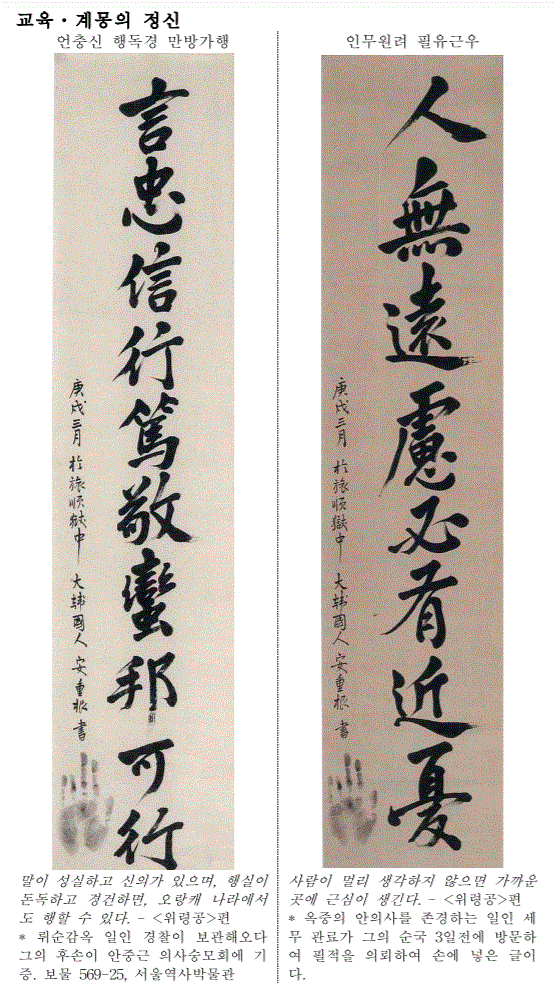 교육·계몽의 정신
언충신 행독경 만방가행
言忠信行篤敬蠻邦可行
庚戌三月 於旅順獄中 大韓國人 安重根 書
말이 성실하고 신의가 있으며, 행실이
돈독하고 경건하면, 오랑캐 나라에서
도 행할 수 있다. - <위령공>편
* 뤼순감옥 일인 경찰이 보관해오다
그의 후손이 안중근 의사숭모회에 기
증. 보물 569-25, 서울역사박물관
인무원려 필유근우
人無遠慮必有近憂
庚戌三月 於旅順獄中 大韓國人 安重根 書
사람이 멀리 생각하지 않으면 가까운
곳에 근심이 생긴다. - <위령공>편
* 옥중의 안의사를 존경하는 일인 세
무 관료가 그의 순국 3일전에 방문하
여 필적을 의뢰하여 손에 넣은 글이
다.